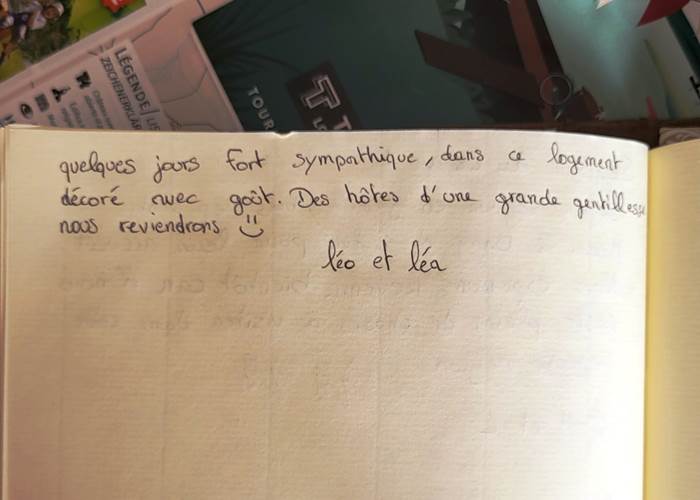 LÉGENDE
ZEICHENERKLÄR
TOUR
T
quelques jours fort sympathique, dans ce logement
décoré avec goût. Des hôtes d'une grande gentillesse
nous reviendrons
léo et léa